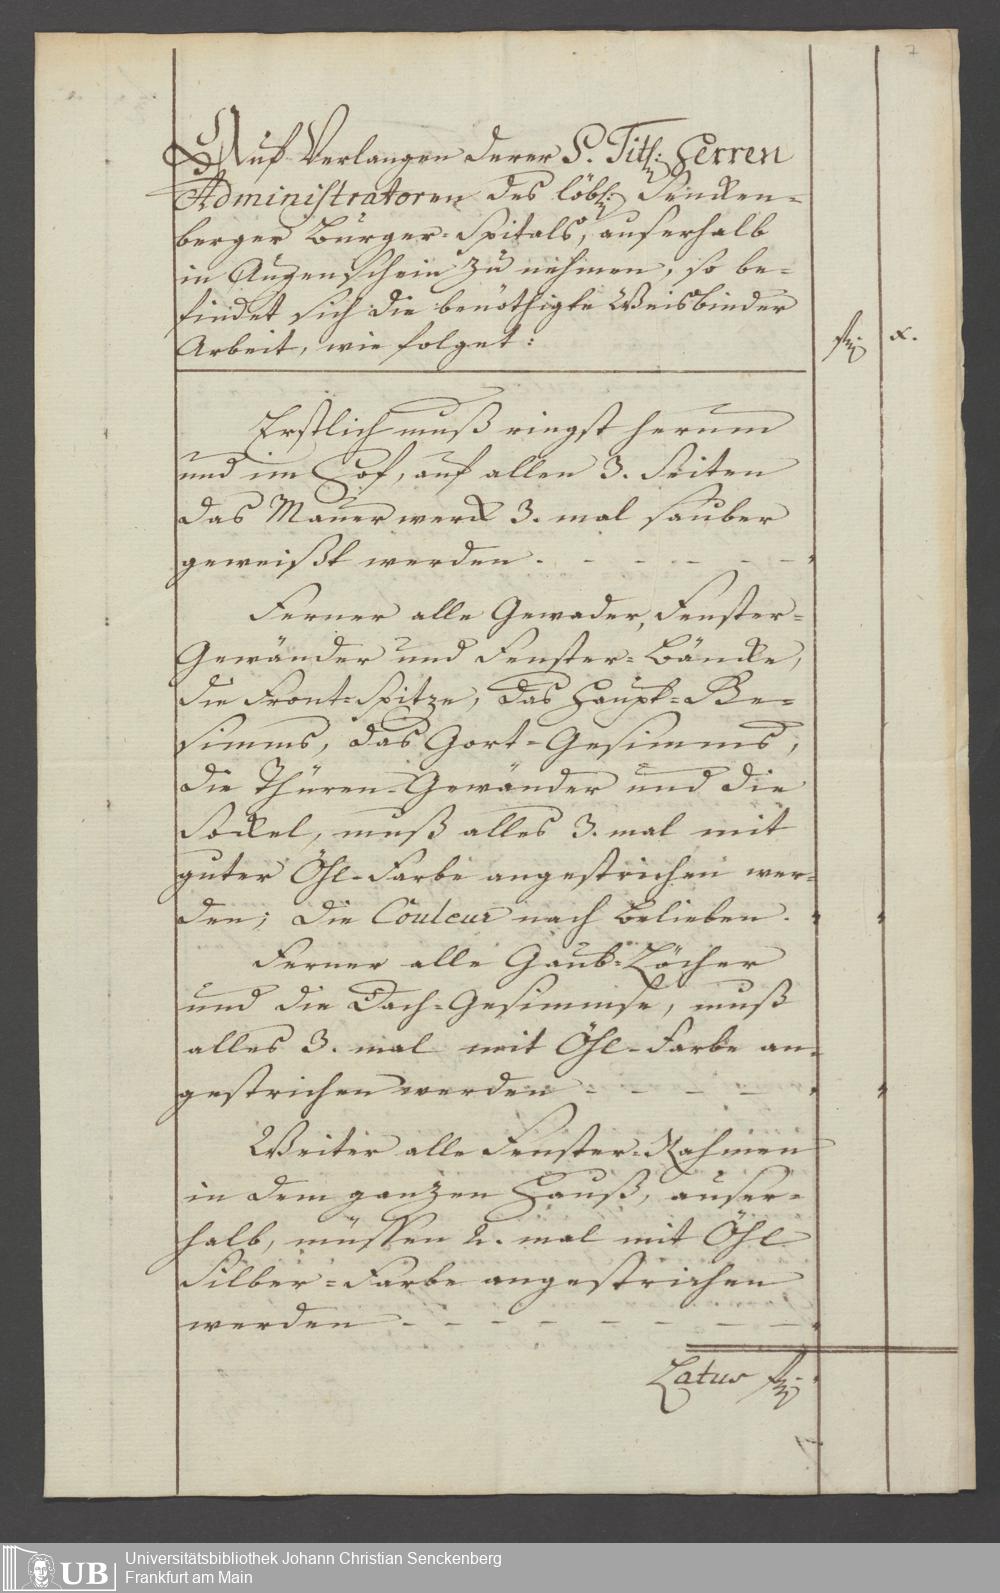 7
Auf Verlangen derer S. Titl: Herren
Administratoren des löbl: Sencken-
berger Bürger-Spitals, auserhalb
in Augenschein zu nehmen, so be-
findet sich die benöthigte Weisbinder
Arbeit, wie folget:
fl: x.
Erstlich muß ringst herum
und im Hof, auf allen 3. Seiten
das Mauerwerck 3. mal sauber
geweißt werden. - - - - -
Ferner alle Gewader, Fenster-
Gewänder und Fenster-Bäncke,
die Front-Spitze, das Haupt-Ge-
simms, das Gort-Gesimms,
die Thüren-Gewänder und die
Sockel, muß alles 3. mal mit
guter Öhl-Farbe angestrichen wer-
den; die Couleur nach belieben.
Ferner alle Gaub-Löcher
und die Dach-Gesimmse, muß
alles 3. mal mit Öhl-Farbe an-
gestrichen werden - - - -
Weiter alle Fenster-Rahmen
in dem ganzen Hauß, auser-
halb, müssen 2. mal mit Öhl
Silber-Farbe angestrichen
werden - - - - - - - -
Latus fl:
UB
Universitätsbibliothek Johann Christian Senckenberg
Frankfurt am Main